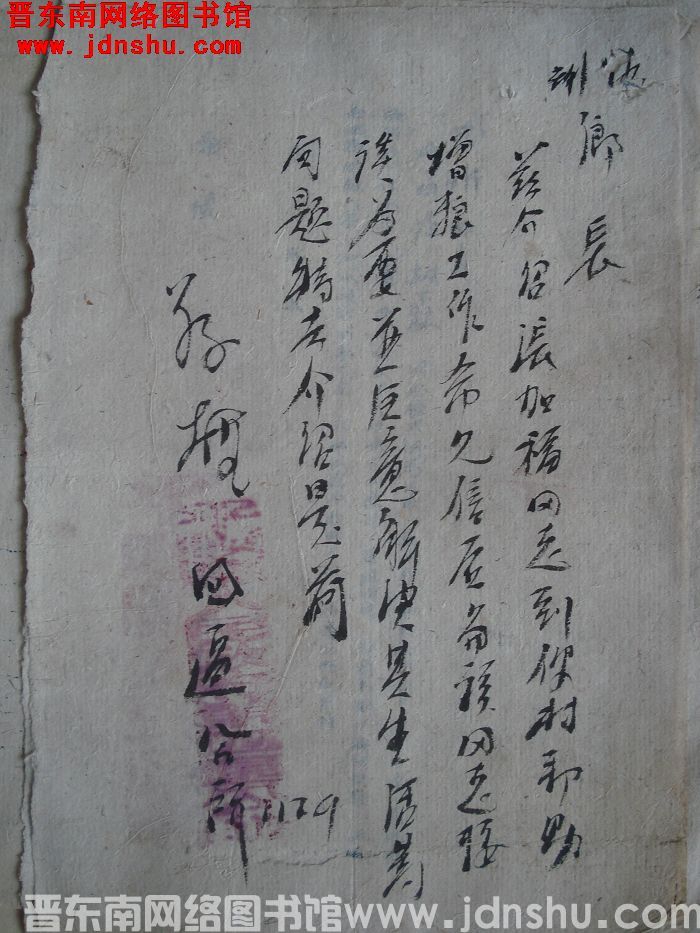 晋东南网络图书馆
www.jdnshu.com
乡长
兹介绍张加福同志到你村帮助
增粮工作希见信后和该同志接
谈为要并注意解决其生活等
问题特去介绍是荷
四区公所
11.29
晋东南网络图书馆 www.jdnshu.com